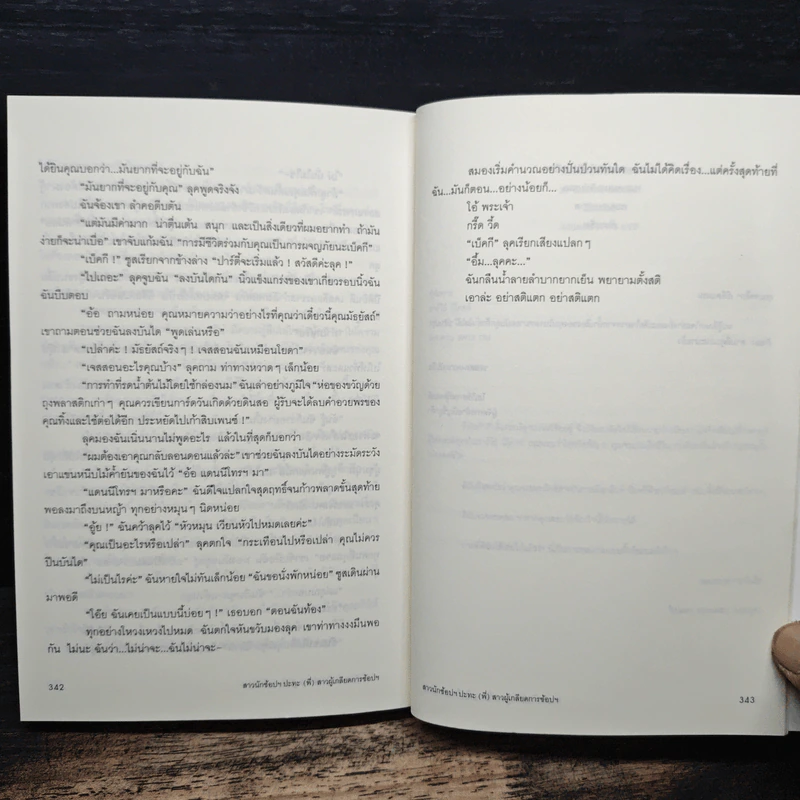 ได้ยินคุณบอกว่า...มันยากที่จะอยู่กับฉัน”
“มันยากที่จะอยู่กับคุณ” ลุคพูดจริงจัง
ฉันจ้องเขา ลำคอตีบตัน
“แต่มันมีค่ามาก น่าตื่นเต้น สนุก และเป็นสิ่งเดียวที่ผมอยากทำ ถ้ามัน
ง่ายก็จะน่าเบื่อ” เขาจับแก้มฉัน “การมีชีวิตร่วมกับคุณเป็นการผจญภัยนะเบ็คกี”
“เบ็คกี !” ซูสเรียกจากข้างล่าง “ปาร์ตี้จะเริ่มแล้ว ! สวัสดีค่ะลุค !”
“ไปเถอะ” ลุคจูบฉัน “ลงบันไดกัน” นิ้วแข็งแกร่งของเขาเกี่ยวรอบนิ้วฉัน
ฉันบีบตอบ
“อ้อ ถามหน่อย คุณหมายความว่าอย่างไรที่คุณว่าเดี๋ยวนี้คุณมัธยัสถ์”
เขาถามตอนช่วยฉันลงบันได “พูดเล่นหรือ”
“เปล่าค่ะ ! มัธยัสถ์จริงๆ ! เจสสอนฉันเหมือนโยดา”
“เจสสอนอะไรคุณบ้าง” ลุคถาม ท่าทางหวาดๆ เล็กน้อย
“การทำที่รดน้ำต้นไม้โดยใช้กล่องนม” ฉันเล่าอย่างภูมิใจ “ห่อของขวัญด้วย
ถุงพลาสติกเก่าๆ คุณควรเขียนการ์ดวันเกิดด้วยดินสอ ผู้รับจะได้ลบคำอวยพรของ
คุณทิ้งและใช้ต่อได้อีก ประหยัดไปเก้าสิบเพนซ์ !”
ลุคมองฉันเนิ่นนานไม่พูดอะไร แล้วในที่สุดก็บอกว่า
“ผมต้องเอาคุณกลับลอนดอนแล้วล่ะ” เขาช่วยฉันลงบันไดอย่างระมัดระวัง
เอาแขนหนีบไม้ค้ำยันของฉันไว้ “อ้อ แดนนีโทรฯ มา”
“แดนนีโทรฯ มาหรือคะ” ฉันดีใจแปลกใจสุดฤทธิ์จนก้าวพลาดขั้นสุดท้าย
พอลงมาถึงบนหญ้า ทุกอย่างหมุนๆ นิดหน่อย
“อู้ย !” ฉันคว้าลุคไว้ “หัวหมุน เวียนหัวไปหมดเลยค่ะ”
“คุณเป็นอะไรหรือเปล่า” ลุคตกใจ “กระเทือนไปหรือเปล่า คุณไม่ควร
ปีนบันได”
“ไม่เป็นไรค่ะ” ฉันหายใจไม่ทันเล็กน้อย “ฉันขอนั่งพักหน่อย” ซูสเดินผ่าน
มาพอดี
“โอ๊ย ฉันเคยเป็นแบบนี้บ่อยๆ !” เธอบอก “ตอนฉันท้อง”
ทุกอย่างโหวงเหวงไปหมด ฉันตกใจหันขวับมองลุค เขาท่าทางงงมึนพอ
กัน ไม่นะ ฉันว่า...ไม่น่าจะ...ฉันไม่น่าจะ–
342
สาวนักช้อปฯ ปะทะ (พี่) สาวผู้เกลียดการช้อปฯ
สมองเริ่มคำนวณอย่างปั่นป่วนทันใด ฉันไม่ได้คิดเรื่อง...แต่ครั้งสุดท้ายที่
ฉัน...มันก็ตอน...อย่างน้อยก็...
โอ้ พระเจ้า
กรี๊ด วี้ด
“เบ็คกี” ลุคเรียกเสียงแปลกๆ
“อึ้ม...ลุคคะ...”
ฉันกลืนน้ำลายลำบากยากเย็น พยายามตั้งสติ
เอาล่ะ อย่าสติแตก อย่าสติแตก
สาวนักช้อปฯ ปะทะ (พี่) สาวผู้เกลียดการช้อปฯ
343